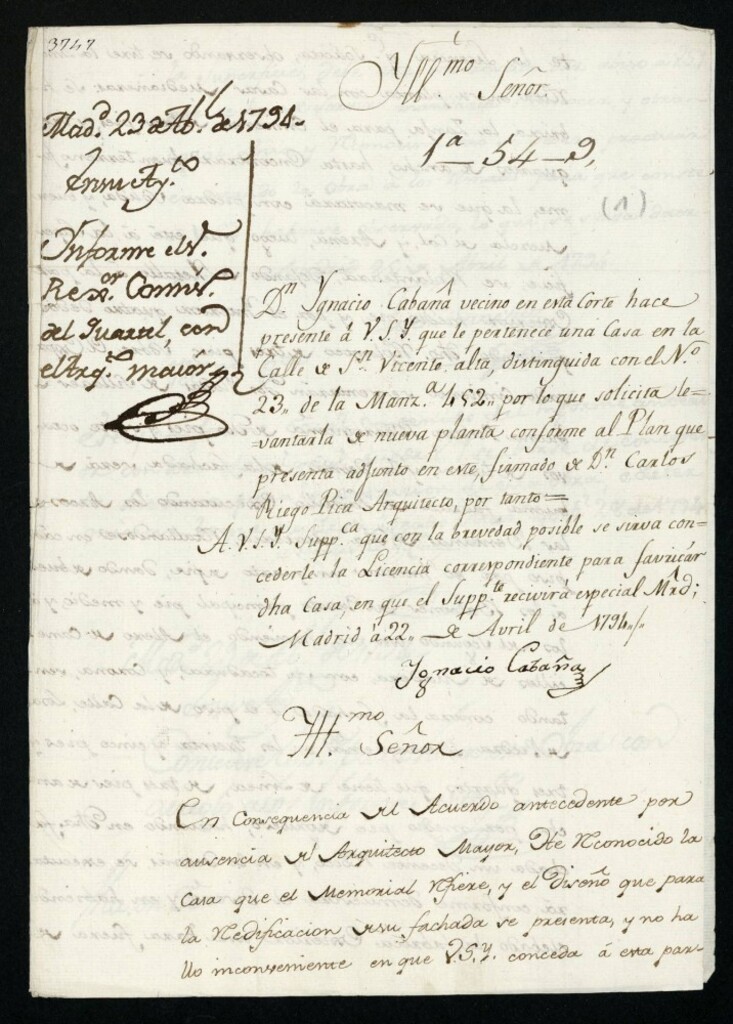 3747
Yll.mo
Señor.
1a 54-9,
(1)
Mad.d 23 de Ab.l de 1794.
En su Ay.to
Informe el S.r
Rex.or Comis.
del Quartel, con
el Arq.to maior
D.n Ygnacio Cabaña vecino en esta Corte hace
presente á V.S.Y. que le pertenece una Casa en la
Calle de S.n Vicente, alta, distinguida con el N.o
23,, de la Manz.a 452,, por lo que solicita le=
vantarla de nueva planta conforme al Plan que
presenta adjunto en este, firmado de D.n Carlos
Riego Pica Arquitecto, por tanto=
A.V.S.Y. Supp.ca que con la brevedad posible se sirva con=
cederle la Licencia correspondiente para favricar
dha Casa, en que el Supp.te recivirá especial Mrd;
Madrid á 22,, de Avril de 1794,,
Ygnacio Cabaña
Yll.mo Señor
En Consequencia del Acuerdo antecedente por
ausencia del Arquitecto Mayor, He Reconocido la
Casa que el Memorial Refiere, y el Diseño que para
la Redificacion de su fachada se presenta, y no ha
llo inconveniente en que V.S.Y. conceda á esta par-